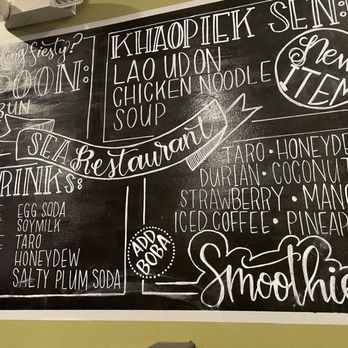 king fiesty?
OON:
BUN
KHAOPIEK SEN:
LAO UDON
CHICKEN NOODLE
SOUP
New
ITEM
SEA Restaurant
RINKS:
EGG SODA
SOYMILK
TARO
HONEYDEW
SALTY PLUM SODA
ADD
BOBA
TARO • HONEYDEW
DURIAN • COCONUT
STRAWBERRY • MANG
ICED COFFEE • PINEAP
Smoothie